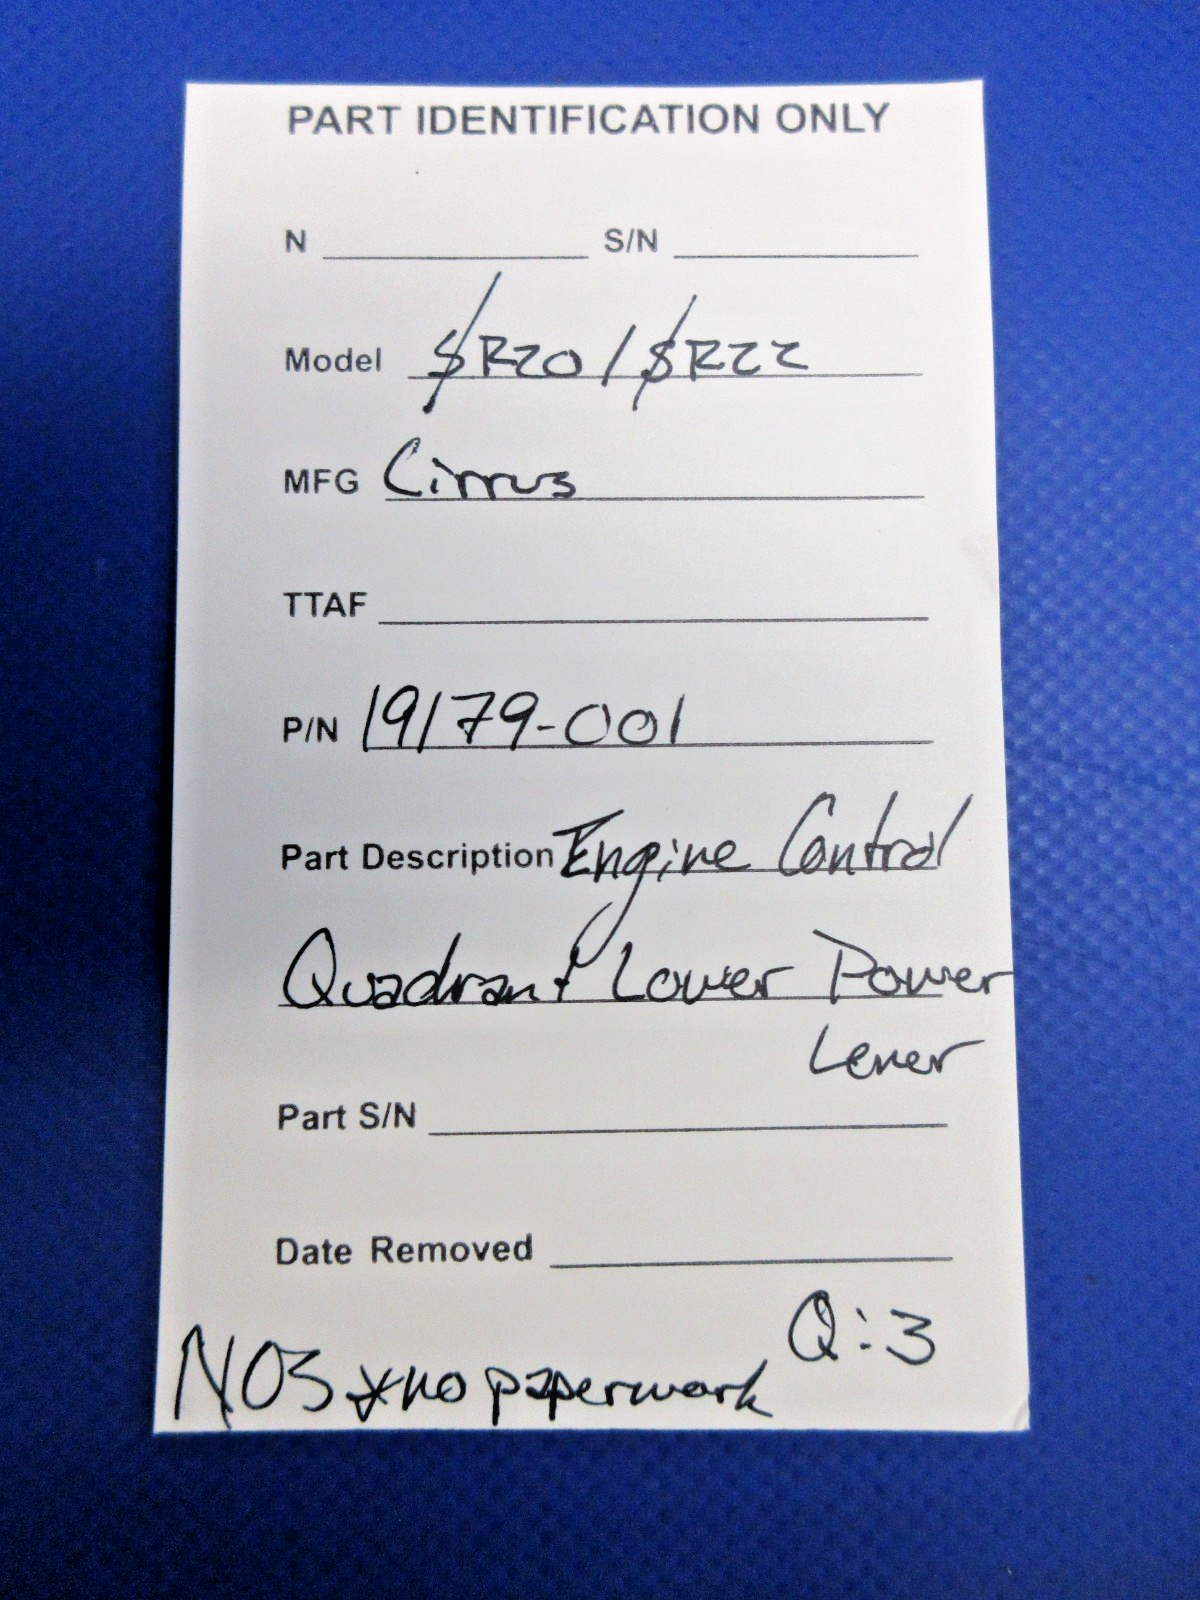 PART IDENTIFICATION ONLY
N S/N
Model SR20/SR22
MFG Cirrus
TTAF
P/N 19179-001
Part Description Engine Control
Quadrant Lower Power
Lever
Part S/N
Date Removed
Q:3
NOS *no paperwork